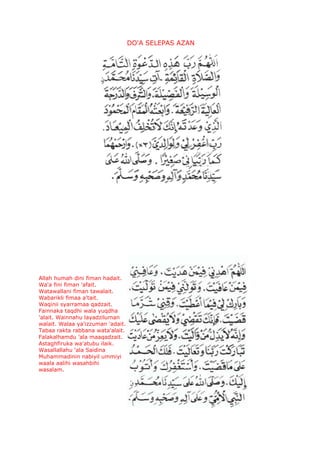 DO'A SELEPAS AZAN
اَللّٰهُمَّ رَبَّ هٰذِهِ الدَّعْوَةِ التَّآمَّةِ
وَالصَّلَاةِ الْقَآئِمَةِ ـ آتِ سَيِّدَنَا مُحَمَّدَ ࣙ
الْوَسِيْلَةَ وَالْفَضِيْلَةَ، وَالشَّرَفَ وَالدَّرَجَةَ
الْعَالِيَةَ الرَّفِيْعَةَ، وَابْعَثْهُ الْمَقَامَ الْمَحْمُوْدَ
الَّذِيْ وَعَدْتَهُ إِنَّكَ لَا تُخْلِفُ الْمِيْعَادَ.
رَبِّ اغْفِرْ لِيْ وَلِوَالِدَيَّ (×٣) . وَارْحَمْهُمَا
كَمَا رَبَّيَانِيْ صَغِيْرًا . وَصَلَّى اللهُ عَلَى
سَيِّدِنَا مُحَمَّدٍ وَآلِهِ وَصَحْبِهِ وَسَلَّمَ.
Allah humah dini fiman hadait.
Wa'a fini fiman 'afait.
Watawallani fiman tawalait.
Wabarikli fimaa a'tait.
Waqinii syarramaa qadzait.
Fainnaka taqdhi wala yuqdha
'alait. Wainnahu layadziluman
walait. Walaa ya'izzuman 'adait.
Tabaa rakta rabbana wata'alait.
Falakalhamdu 'ala maaqadzait.
Astaghfiruka wa'atubu ilaik.
Wasallallahu 'ala Saidina
Muhammadinin nabiyil ummiyi
waala aalihi wasahbihi
wasalam.
اَللّٰهُمَّ اهْدِنِيْ فِيْمَنْ هَدَيْتَ، وَعَافِنِيْ
فِيْمَنْ عَافَيْتَ، وَتَوَلَّنِيْ فِيْمَنْ تَوَلَّيْتَ،
وَبَارِكْ لِيْ فِيْمَا أَعْطَيْتَ، وَقِنِيْ شَرَّ مَا
قَضَيْتَ، فَإِنَّكَ تَقْضِيْ وَلَا يُقْضٰى عَلَيْكَ
وَإِنَّهُ لَا يَذِلُّ مَنْ وَّالَيْتَ، وَلَا يَعِزُّ مَنْ عَادَيْتَ
تَبَارَكْتَ رَبَّنَا وَتَعَالَيْتَ، فَلَكَ الْحَمْدُ
عَلٰى مَا قَضَيْتَ، وَأَسْتَغْفِرُكَ وَأَتُوْبُ
إِلَيْكَ، وَصَلَّى اللهُ عَلٰى سَيِّدِنَا مُحَمَّدٍ
النَّبِيِّ الْأُمِّيِّ وَعَلٰى آلِهِ وَصَحْبِهِ وَسَلَّمَ.